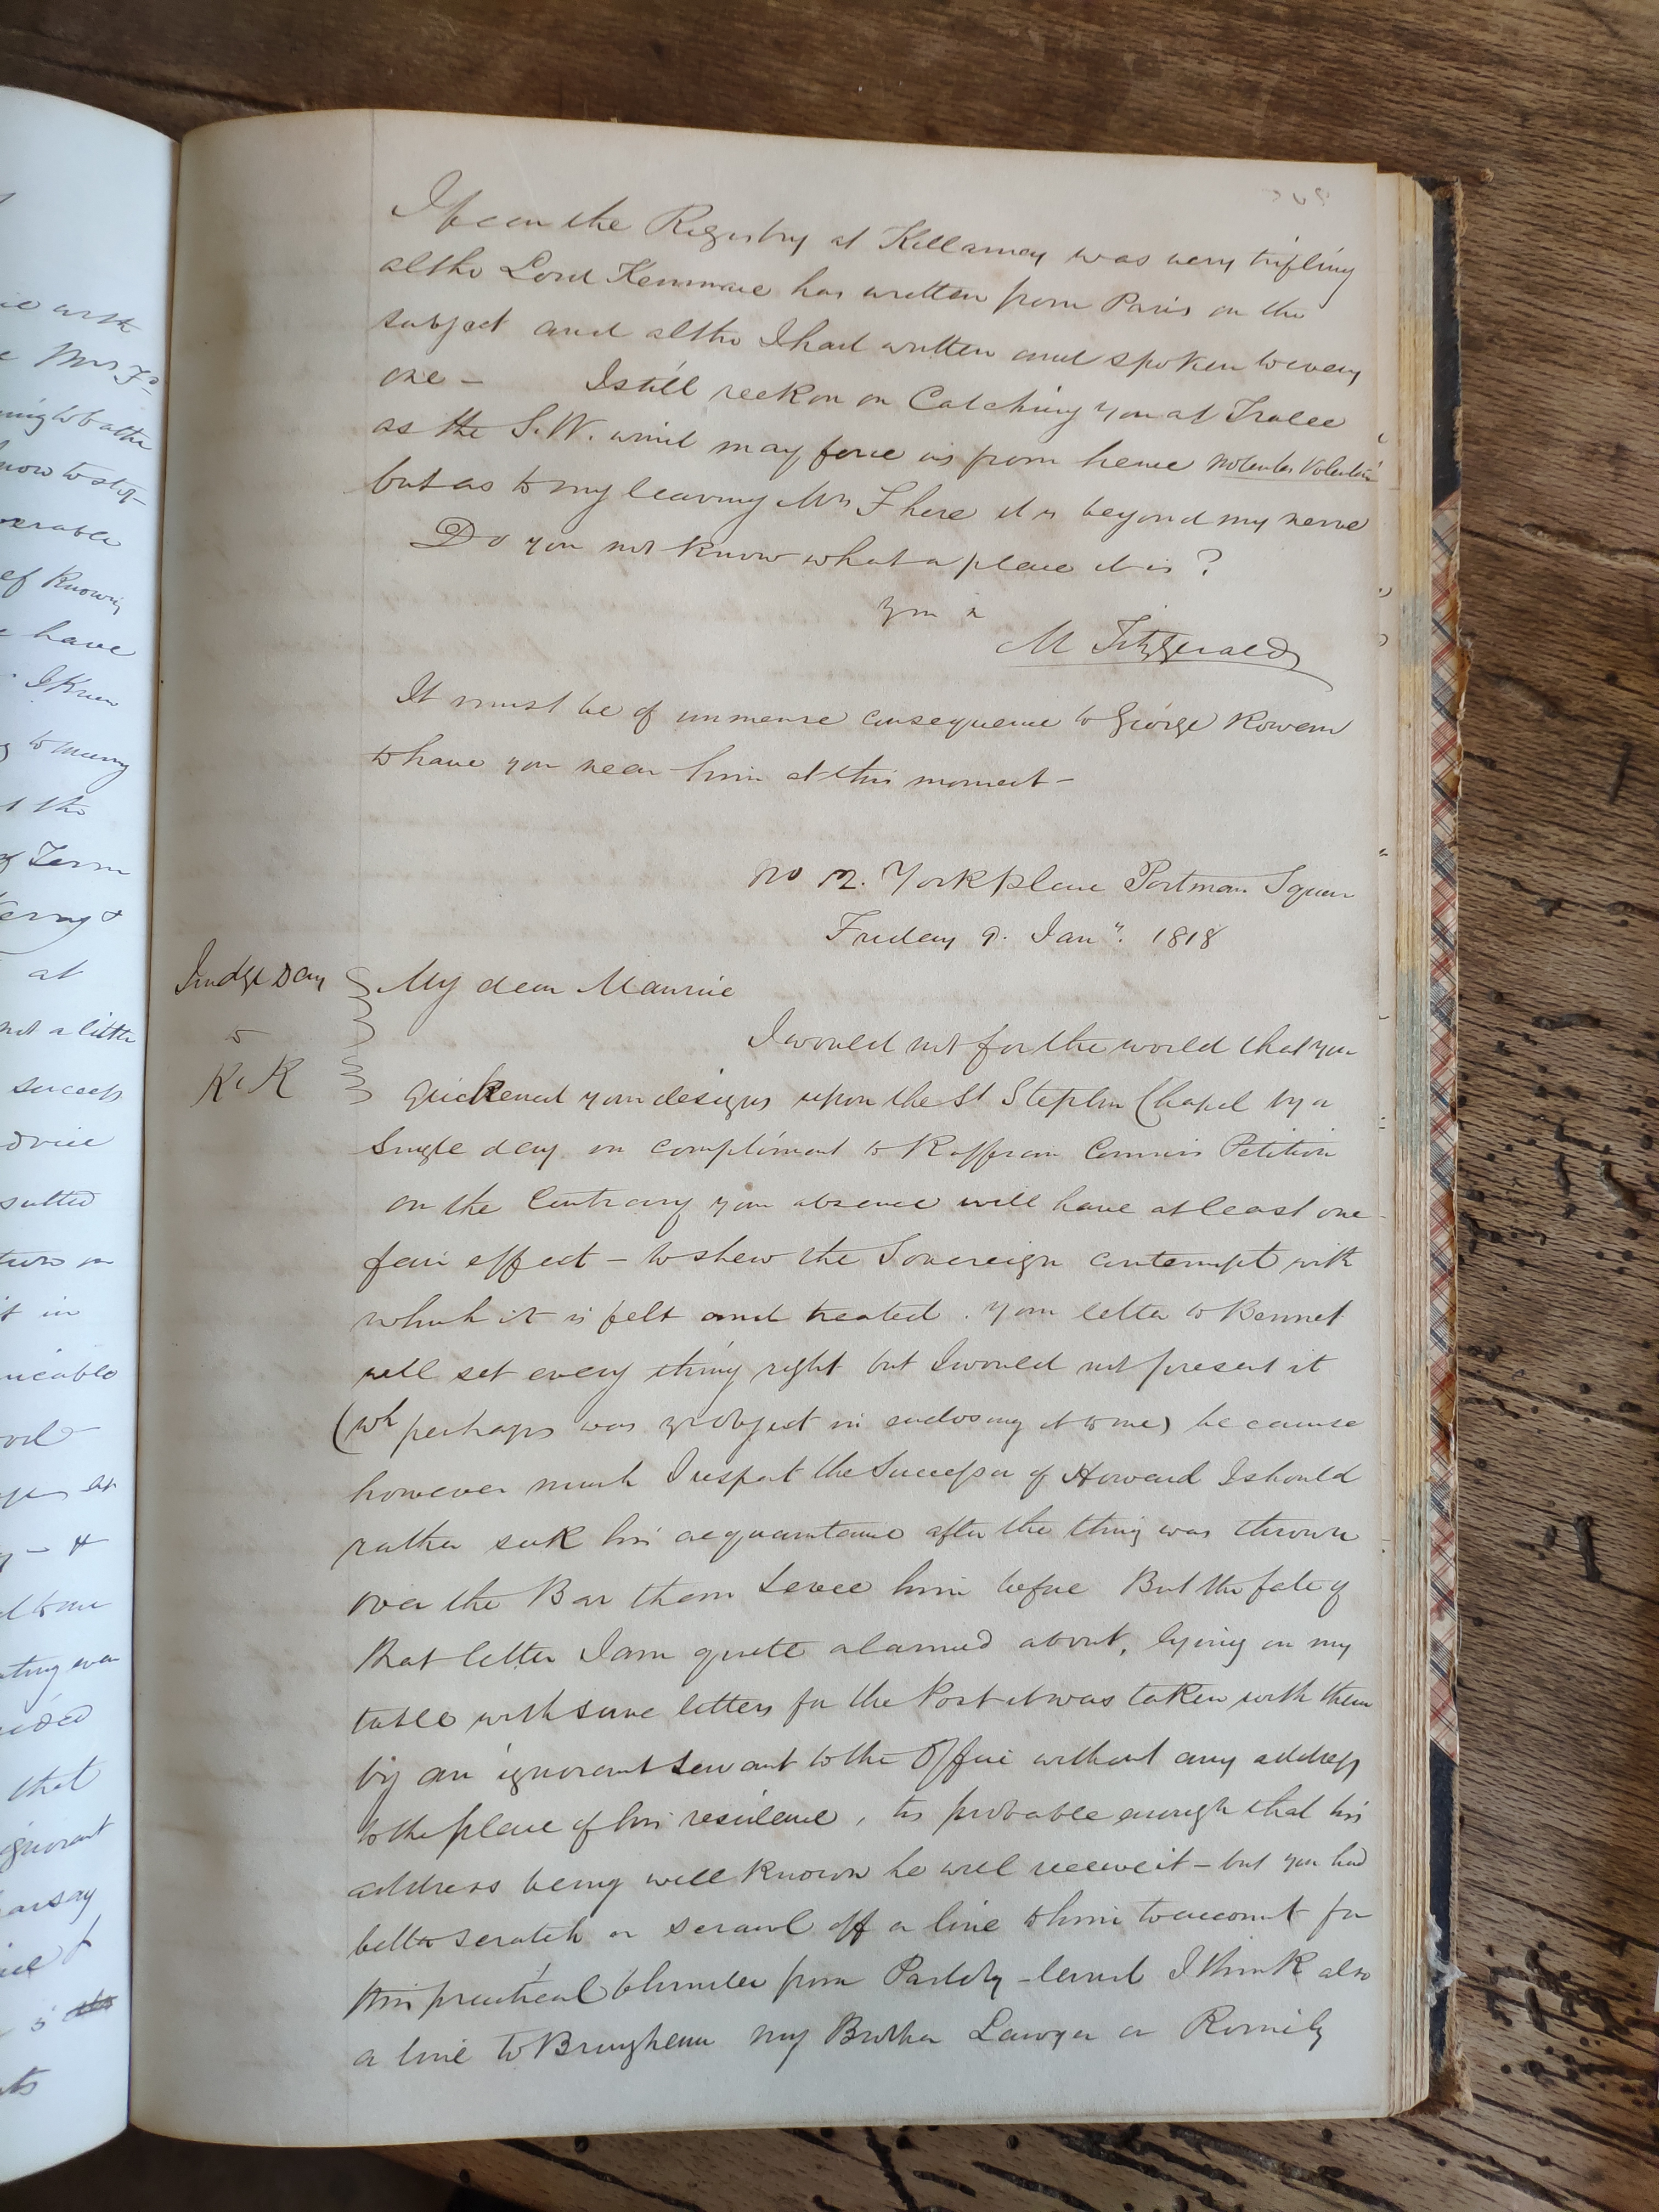 I fear the Registry at Killarney was very trifling
altho Lord Kenmare has written from Paris on the
subject and altho I had written and spoken to every
one – I still reckon on Catching you at Tralee
as the S.W. wind may force us from hence nolentes volentes
but as to my leaving Mrs F here it is beyond my nerve
Do you not know what a place it is?
M Fitzgerald
It must be of immense consequence to George Rowan
to have you near him at this moment –
No 12. York place Portman Square
Friday 9. Jany. 1818
Judge Day
to
K K
My dear Maurice
I would not for the world that you
quickened your designs upon the St Stephen Chapel by a
Single day in compliment to Connors Petition
on the Contrary your absence will have at least one
fair effect – to shew the Sovereign contempt with
which it is felt and treated. your letter to Bennet
will set every thing right but I would not present it
(wh perhaps was yr object in enclosing it to me) because
however much I respect the Successor of Howard I should
rather seek his acquaintance after the thing was thrown
over the Bar than Levee him before But the fate of
that letter I am quite alarmed about, lying on my
table with some letters for the Post it was taken with them
by an ignorant servant to the Office without any address
to the place of his residence, tis probable enough that his
address being well known he will receive it – but you had
better scratch or scrawl off a line to him to account for
this practical blunder from Paddy-land I think also
a line to Brougham my Brother Lawyer or Romily